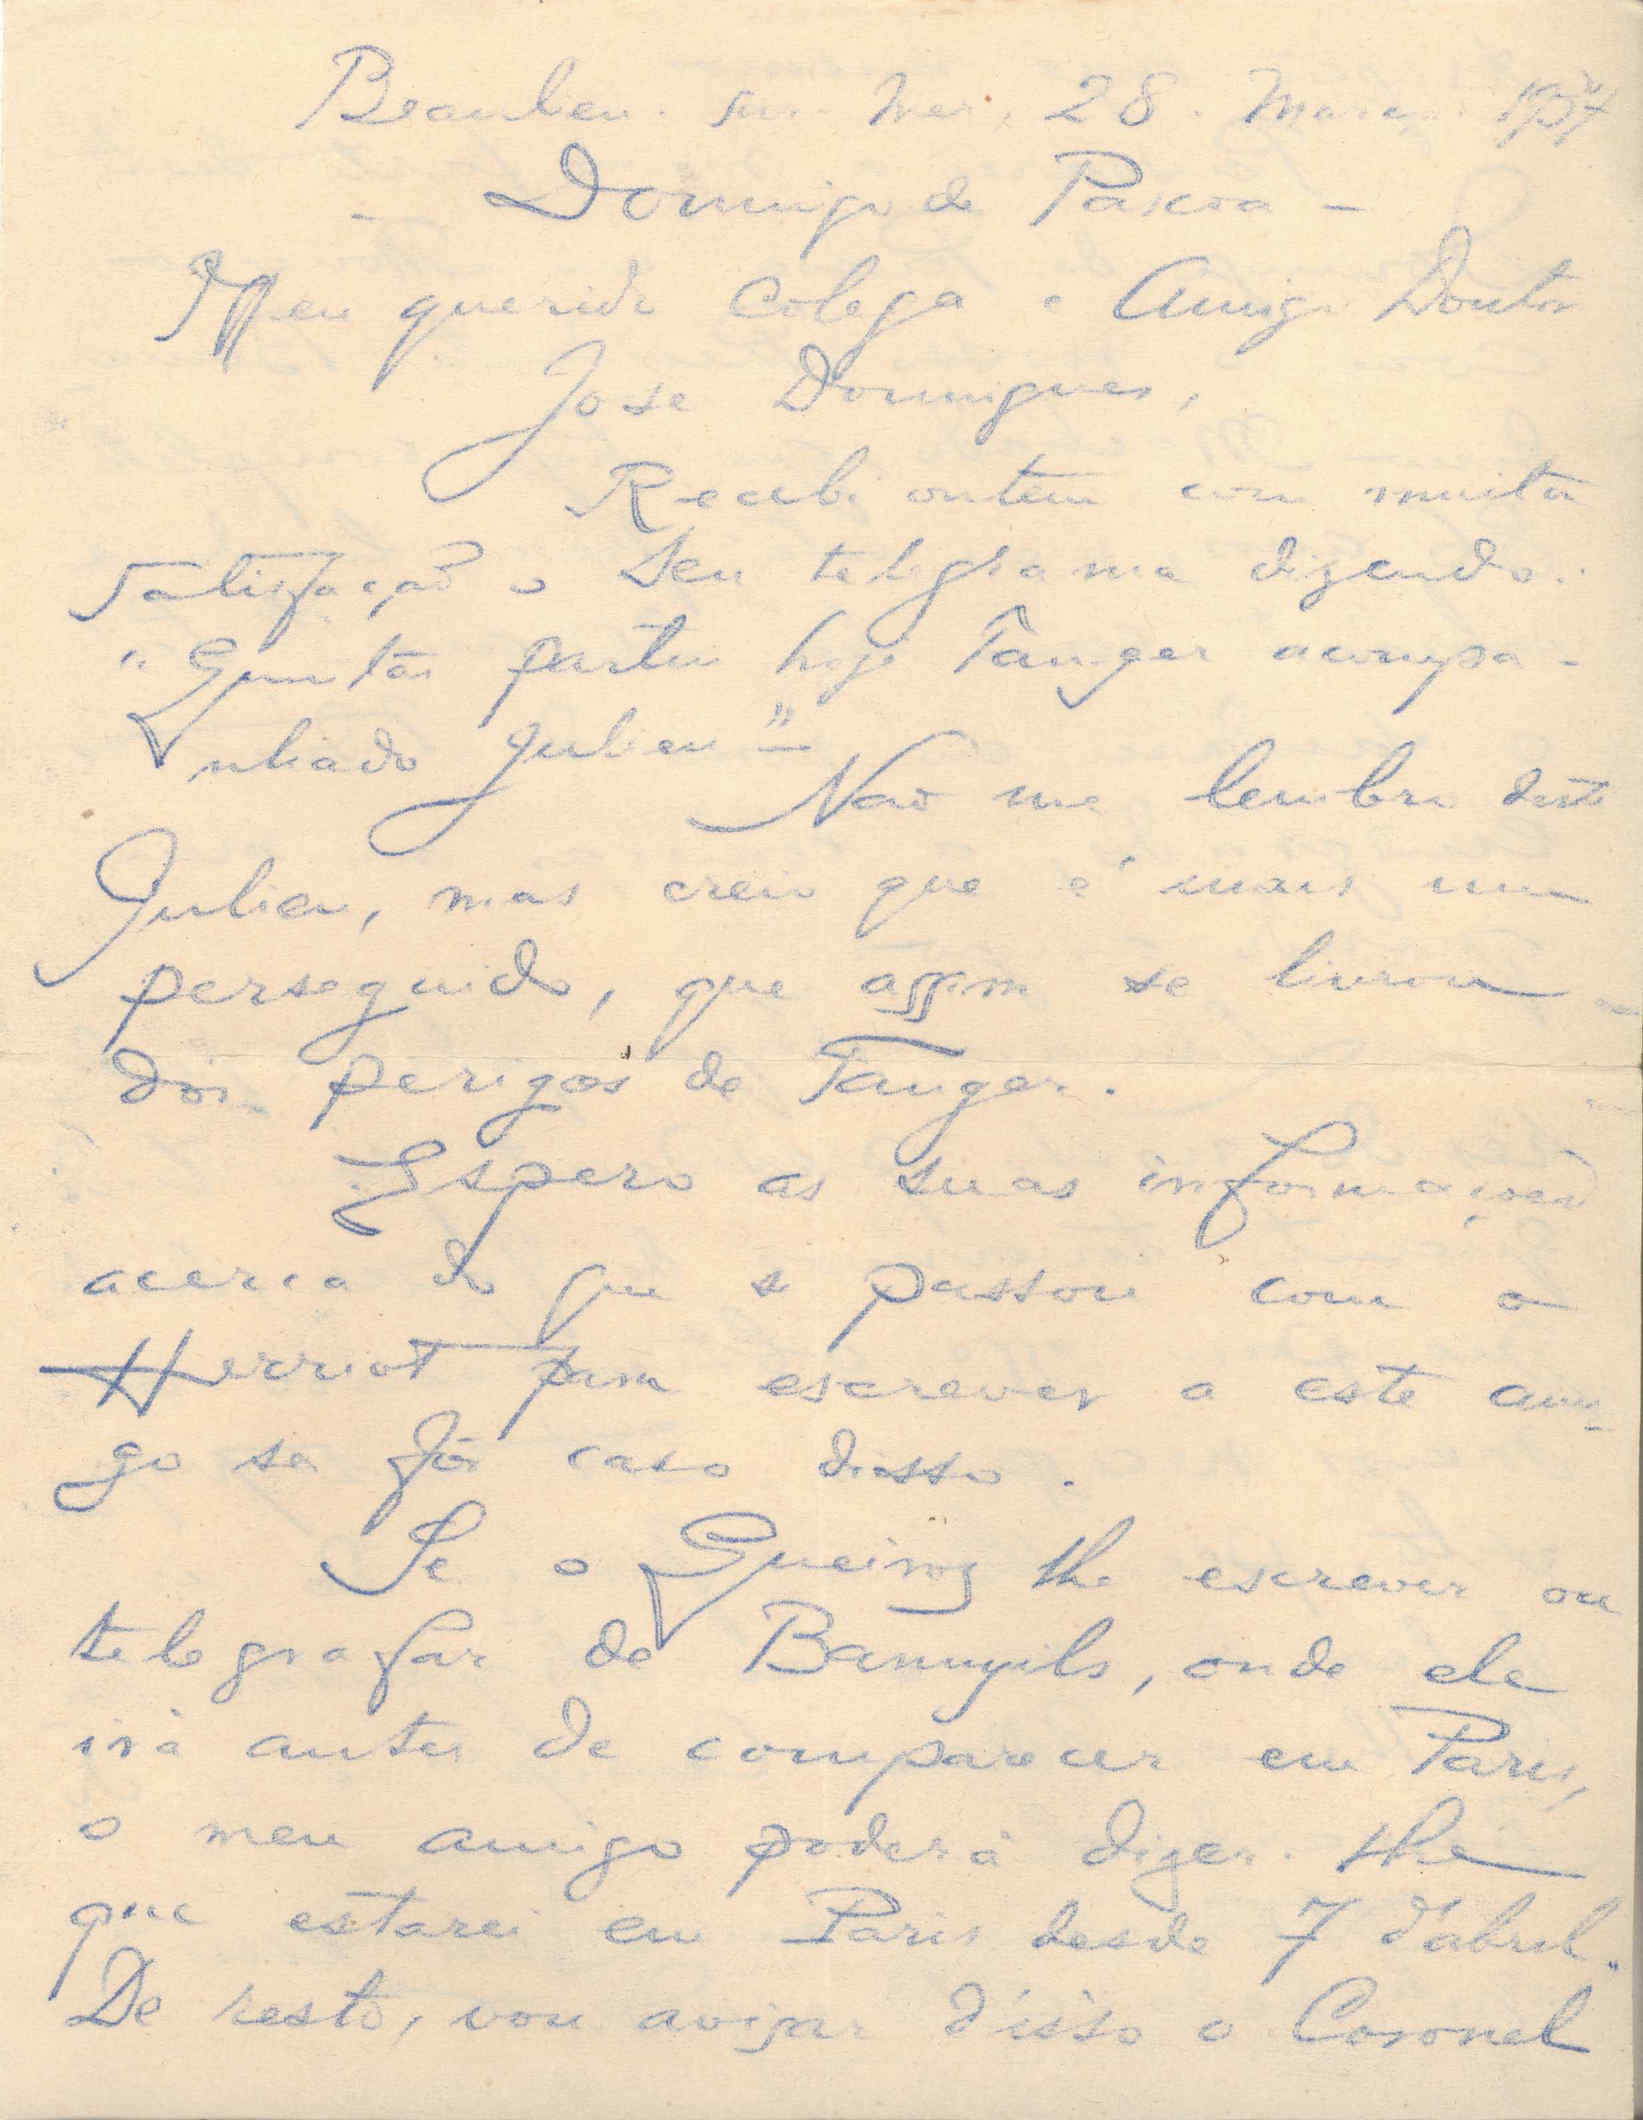 Beaulieu-sur-Mer, 28-Março-1937
- Domingo de Pascoa -
Meu querido Colega e Amigo Doutor
José Domingues,
Recebi ontem com muita
satisfação o seu telegrama dizendo:
" partiu hoje Tanger acompa-
nhado Julien" - Não me lembro deste
Julien, mas creio que é mais um
perseguido, que assim se livrou
dos perigos de Tanger.
Espero as suas informações
acerca do que se passou com o
Herriot para escrever a este ami-
go se fôr caso disso.
Se o Queiroz lhe escrever ou
telegrafar de Banuyls, onde ele
irá antes de comparecer em Paris,
o meu amigo poderá dizer-lhe
que estarei em Paris desde 7 d'abril.
De resto, vou avisar d'isso o Coronel